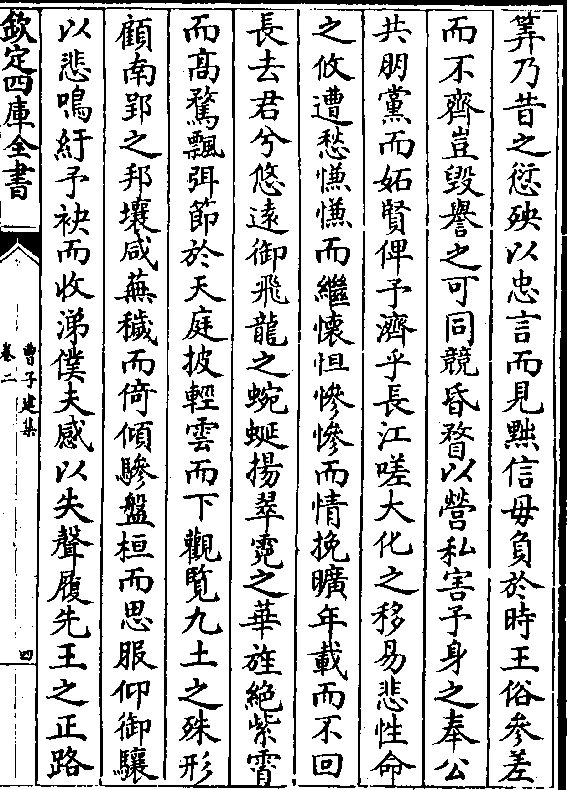 筭乃昔之愆殃以忠言而見黜信毋負於時王俗參差
而不齊豈毀譽之可同競昏瞀以營私害予身之奉公
共朋黨而妬賢俾予濟乎長江嗟大化之移易悲性命
之攸遭愁慊慊而繼懷怛慘慘而情挽曠年載而不回
長去君兮悠遠御飛龍之蜿蜒揚翠霓之華旌絶紫霄
而高騖飄弭節於天庭披輕雲而下觀覽九土之殊形
顧南郢之邦壤咸蕪穢而倚傾驂盤桓而思服仰御驤
以悲鳴紆予袂而收涕僕夫感以失聲履先王之正路
欽定四庫全書
曹子建集
卷二
四